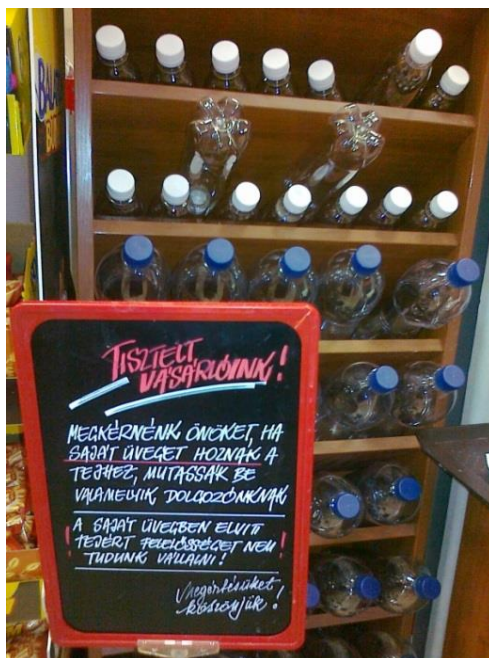 TISZTELT
VÁSÁRLÓINK!
MEGKÉRNÉNK ÖNÖKET, HA
SAJÁT ÜVEGET HOZNAK A
TEJHEZ, MUTASSÁK BE
VALAMELYIK DOLGOZÓNKNAK
A SAJÁT ÜVEGBEN ELVITT
TEJÉRT FELELŐSSÉGET NEM
TUDUNK VÁLLALNI!
Megértésüket
köszönjük!